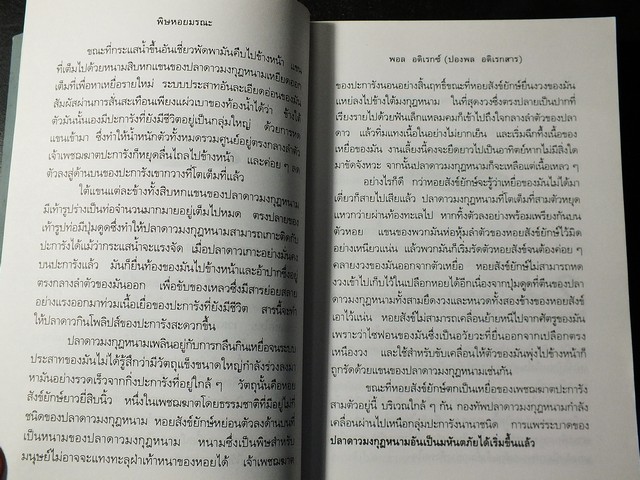 พิษหอยมรณะ
ขณะที่กระแสน้ำขึ้นอันเชี่ยวพัดพามันคืบไปข้างหน้า แขน
ที่เต็มไปด้วยหนามสิบหกแขนของปลาดาวมงกุฎหนามเหยียดออก
เต็มที่เพื่อหาเหยื่อรายใหม่ ระบบประสาทอันละเอียดอ่อนของมัน
สัมผัสผ่านการสั่นสะเทือนเพียงแผ่วเบาของท้องน้ำได้ว่า ข้างใต้
ตัวมันนั้นเองมีปะการังที่ยังมีชีวิตอยู่เป็นกลุ่มใหญ่ ด้วยการหด
แขนเข้ามา ซึ่งทำให้น้ำหนักตัวทั้งหมดรวมศูนย์อยู่ตรงกลางลำตัว
เจ้าเพชฌฆาตปะการังก็หยุดลื่นไถลไปข้างหน้า และค่อย ๆ ลด
ตัวลงสู่ด้านบนของปะการังเขากวางที่โตเต็มที่แล้ว
ใต้แขนแต่ละข้างทั้งสิบหกแขนของปลาดาวมงกุฎหนาม
มีเท้ารูปร่างเป็นท่อจำนวนมากมายอยู่เต็มไปหมด ตรงปลายของ
เท้ารูปท่อมีปุ่มดูดซึ่งทำให้ปลาดาวมงกุฎหนามสามารถเกาะติดกับ
ปะการังได้แม้ว่ากระแสน้ำจะแรงจัด เมื่อปลาดาวเกาะอย่างมั่นคง
บนปะการังแล้ว มันก็ยื่นท้องของมันไปข้างหน้าและอ้าปากซึ่งอยู่
ตรงกลางลำตัวของมันออก เพื่อขับของเหลวซึ่งมีสารย่อยสลาย
อย่างแรงออกมาท่วมเนื้อเยื่อของปะการังที่ยังมีชีวิต สารนี้จะทำ
ให้ปลาดาวกินโพลิปส์ของปะการังสะดวกขึ้น
ปลาดาวมงกุฎหนามเพลินอยู่กับการกลืนกินเหยื่อจนระบบ
ประสาทของมันไม่ได้รู้สึกว่ามีวัตถุแข็งขนาดใหญ่กำลังร่วงลงมา
หามันอย่างรวดเร็วจากกิ่งปะการังที่อยู่ใกล้ ๆ วัตถุนั้นคือหอย
สังข์ยักษ์ยาวยี่สิบนิ้ว หนึ่งในเพชฌฆาตโดยธรรมชาติที่มีอยู่ไม่กี่
ชนิดของปลาดาวมงกุฎหนาม หอยสังข์ยักษ์หย่อนตัวลงด้านบนที่
เป็นหนามของปลาดาวมงกุฎหนาม หนามซึ่งเป็นพิษสำหรับ
มนุษย์ไม่อาจจะแทงทะลุฝ่าเท้าหนาของหอยได้ เจ้าเพชฌฆาต
พอล อดิเรกซ์ (ปองพล อดิเรกสาร)
ของปะการังนอนอย่างสิ้นฤทธิ์ขณะที่หอยสังข์ยักษ์ยื่นงวงของมัน
แหย่ลงไปข้างใต้มงกุฎหนาม ในที่สุดงวงซึ่งตรงปลายเป็นปากที่
เรียงรายไปด้วยฟันเล็กแหลมคมก็เข้าไปถึงใจกลางลำตัวของปลา
ดาว แล้วทิ่มแทงเนื้อในอย่างไม่ยากเย็น และเริ่มฉีกทึ้งเนื้อของ
เหยื่อของมัน งานเลี้ยงนี้คงจะยืดยาวไปเป็นอาทิตย์หากไม่มีสิ่งใด
มาขัดจังหวะ จากนั้นปลาดาวมงกุฎหนามก็จะเหลือแต่เนื้อเหลว ๆ
อย่างไรก็ดี กว่าหอยสังข์ยักษ์จะรู้ว่าเหยื่อของมันไม่ได้มา
เดี่ยวก็สายไปเสียแล้ว ปลาดาวมงกุฎหนามที่โตเต็มที่สามตัวหยุด
แหวกว่ายผ่านท้องทะเลไป หากทิ้งตัวลงอย่างพร้อมเพรียงกันบน
ตัวหอย แขนของพวกมันห่อหุ้มลำตัวของหอยสังข์ยักษ์ไว้มิด
อย่างเหนียวแน่น แล้วพวกมันก็เริ่มรัดตัวหอยสังข์จนต้องค่อย ๆ
คลายงวงของมันออกจากตัวเหยื่อ หอยสังข์ยักษ์ไม่สามารถหด
งวงเข้าไปเก็บไว้ในเปลือกหอยได้อีกเนื่องจากปุ่มดูดที่ตีนของปลา
ดาวมงกุฎหนามทั้งสามยึดงวงและหนวดทั้งสองข้างของหอยสังข์
เอาไว้แน่น หอยสังข์ไม่สามารถเคลื่อนย้ายหนีไปจากศัตรูของมัน
เพราะว่าไซฟอนของมันซึ่งเป็นอวัยวะที่ยื่นออกจากเปลือกตรง
เหนืองวง และใช้สำหรับขับเคลื่อนให้ตัวของมันพุ่งไปข้างหน้าก็
ถูกรัดด้วยแขนของปลาดาวมงกุฎหนามเช่นกัน
ขณะที่หอยสังข์ยักษ์ตกเป็นเหยื่อของเพชฌฆาตปะการัง
สามตัวอยู่นี้ บริเวณใกล้ ๆ กัน กองทัพปลาดาวมงกุฎหนามกำลัง
เคลื่อนผ่านไปเหนือกลุ่มปะการังนานาชนิด การแพร่ระบาดของ
ปลาดาวมงกุฎหนามอันเป็นมหันตภัยได้เริ่มขึ้นแล้ว